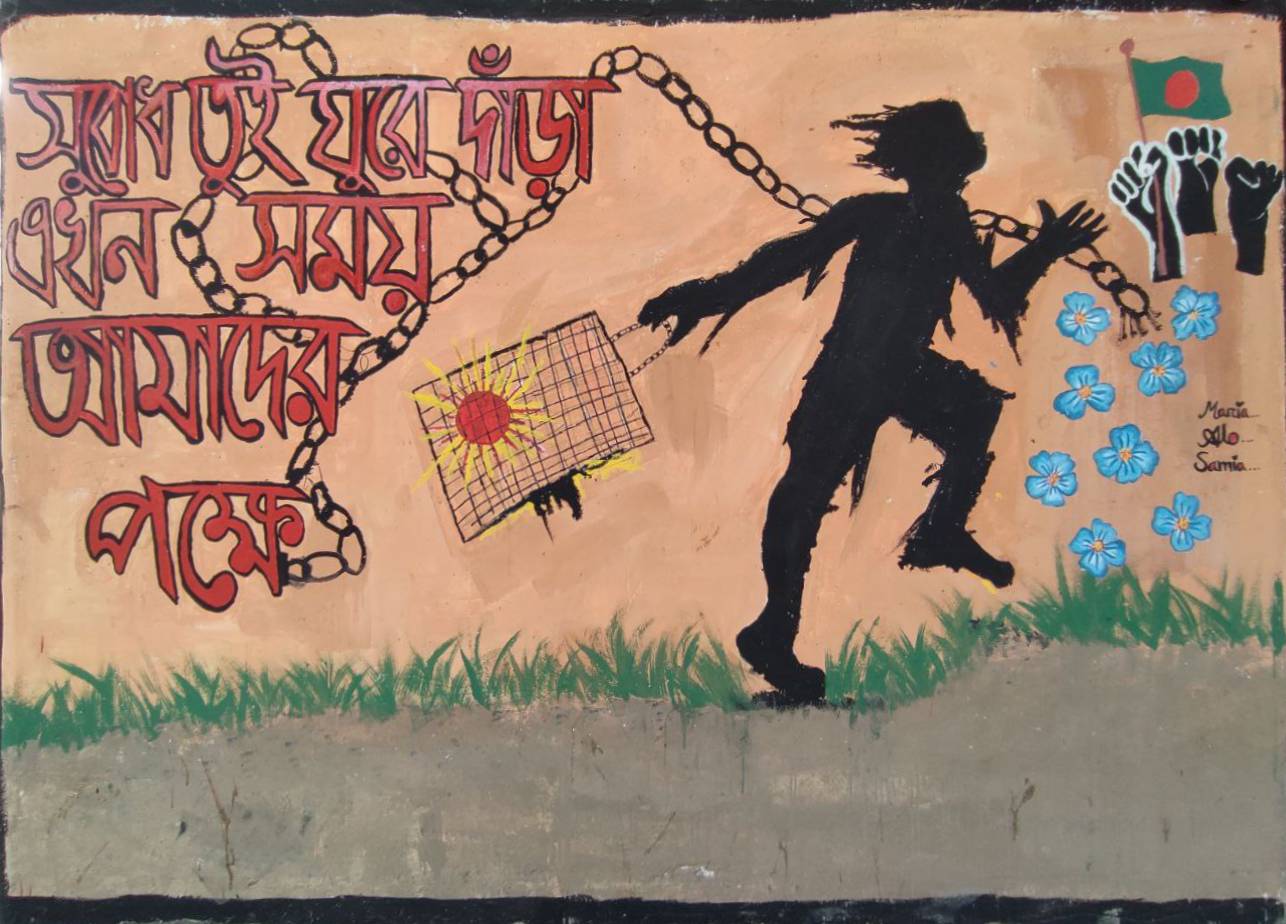 সুবোধ তুই ঘুরে দাঁড়া
এখন সময়
আমাদের
পক্ষে
Maria...
Allo...
Samia...